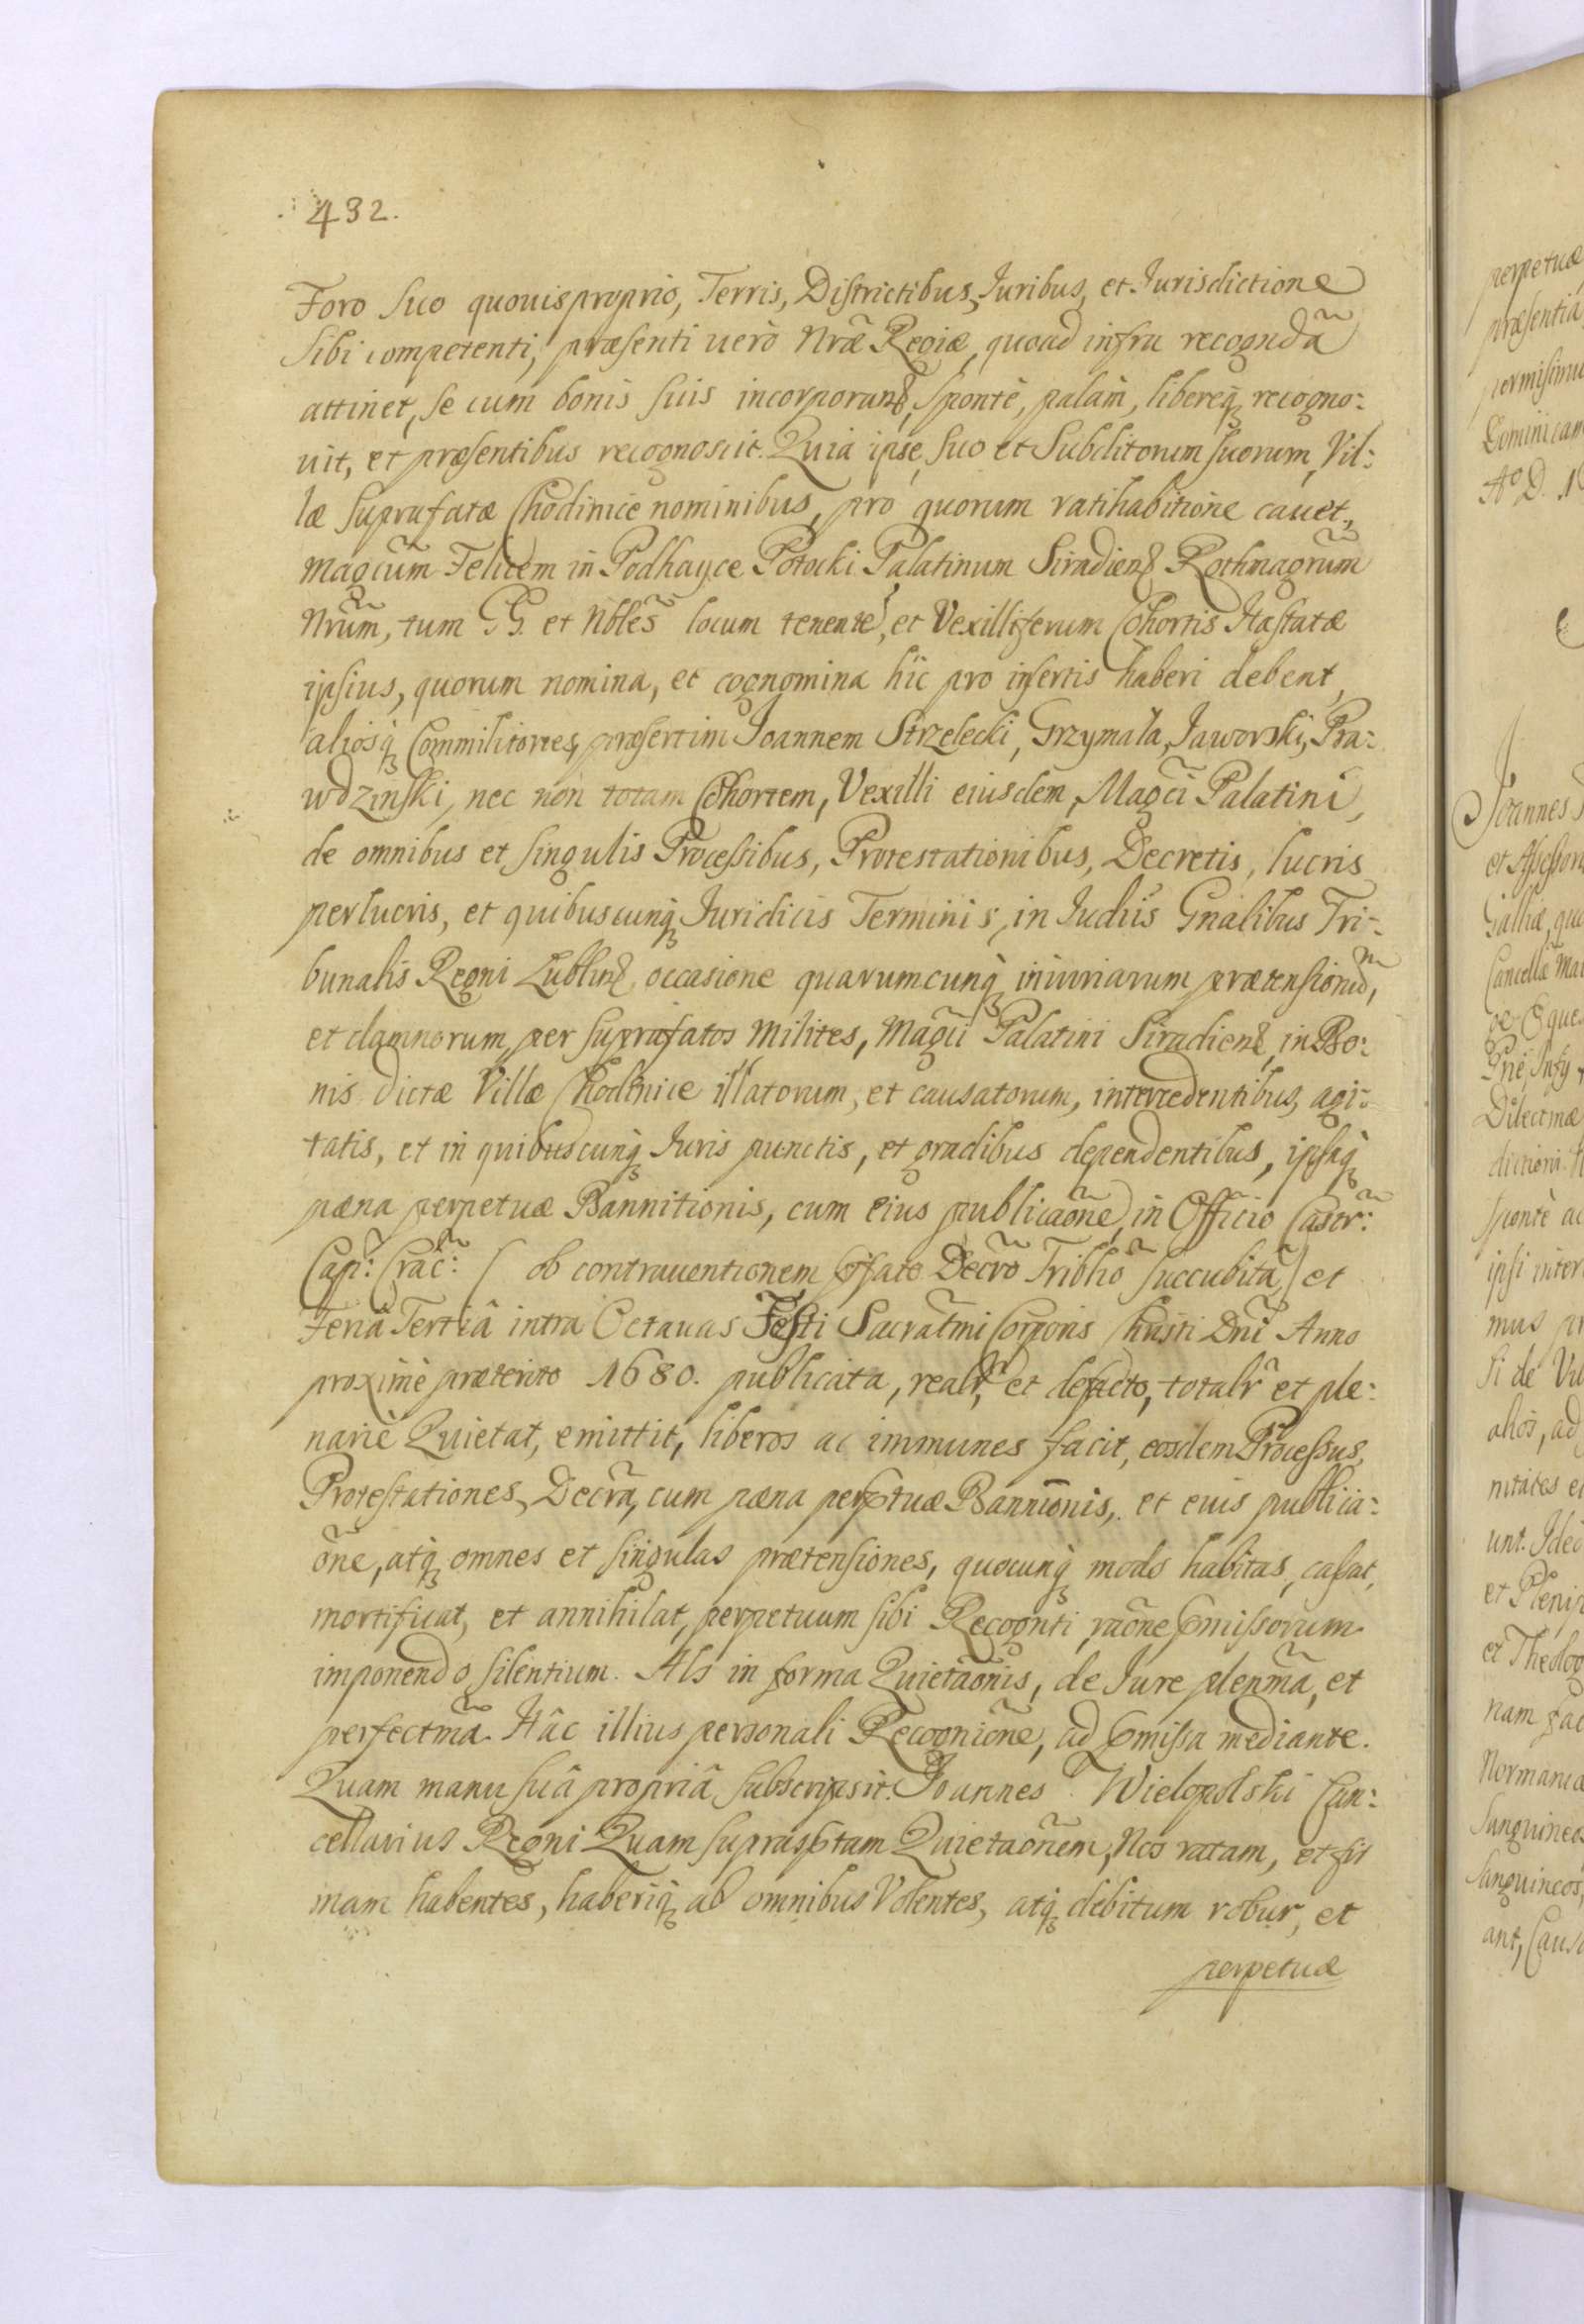 432.
Foro Suo quouis proprio, Terris, Districtibus, Iuribus, et Iurisdictione
Sibi competenti, præsenti uerò Nrã Regiæ, quoad infra recogndã
attinet, Se cum bonis suis incorporans, Spontè, palàm, libereq; recogno:
uit, et præsentibus recognoscit. Quia ipse, Suo et Subditorum suorum, Vil:
læ Suprafatæ Chodinice nominibus, pro quorum ratihabitione cauet,
Magcum Felicem in Podhayce Potocki Palatinum Siradiens Rothmagrum
Nrum, tum GG. et Nbles locum tenente, et Vexilliferum Cohortis Hastatæ
ipsius, quorum nomina, et cognomina hic pro insertis haberi debent,
aliosq; Commilitones, præsertim Ioannem Strzelecki, Grzymała, Jaworski, Pra:
wdzinski, nec non totam Cohortem, Vexilli eiusdem, Magci Palatini,
de omnibus et singulis Processibus, Protestationibus, Decretis, lucris
perlucris, et quibuscunq; Iuridicis Terminis, in Iudiis Gnalibus Tri:
bunalis Regni Lublins, occasione quarumcunq; iniuriarum prætensionu,
et damnorum, per Suprafatos Milites, Magci Palatini Siradiens, in Bo:
nis dictæ Villæ Chodinice illatorum, et causatorum, intercedentibus, agi:
tatis, et in quibuscunq; Iuris punctis, et gradibus dependentibus, ipsaq;
pæna perpetuæ Bannitionis, cum eius publicaõne, in Officio Castr:
Capi: Crac: ( ob contrauentionem pfato Decro Tribli Succubita ) et
Feria Tertiâ intra Octauas Festi Sacratmi Corporis Christi Dni Anno
proximè præterito 1680. publicata, realr, et defacto, totalr et ple:
nariè Quietat, emittit, liberos ac immunes facit, eosdem Processus,
Protestationes, Decra, cum pæna perptuæ Bannionis, et eius publica:
õne, atq; omnes et singulas prætensiones, quocunq; modo habitas, cassat,
mortificat, et annihilat, perpetuum sibi Recognti, raõne pmissorum
imponendo silentium. Als in forma Quietaõnis, de Iure plenma, et
perfectma. Hâc illius personali Recogniõne, ad pmissa mediante.
Quam manu suâ propriâ subscripsit. Ioannes Wielopolski Can:
cellarius Regni Quam suprasptam Quietaõnem, Nos ratam, et fir
mam habentes, haberiq; ab omnibus Volentes, atq; debitum robur, et
perpetuæ
perpetuæ
præsentia
Dominicam
Ao D.
Joannes
et Assessor
Galliæ, qu
Cancellæ Ma
Dilectmæ
Spontè ac
ipsi inter
mus pr
Si de Vil
alios, ad
nitates e
unt. Ideo
et Plenip
et Theolog
nam fac
Normania
Sanguineos
Sanguineos,
ant, Caus